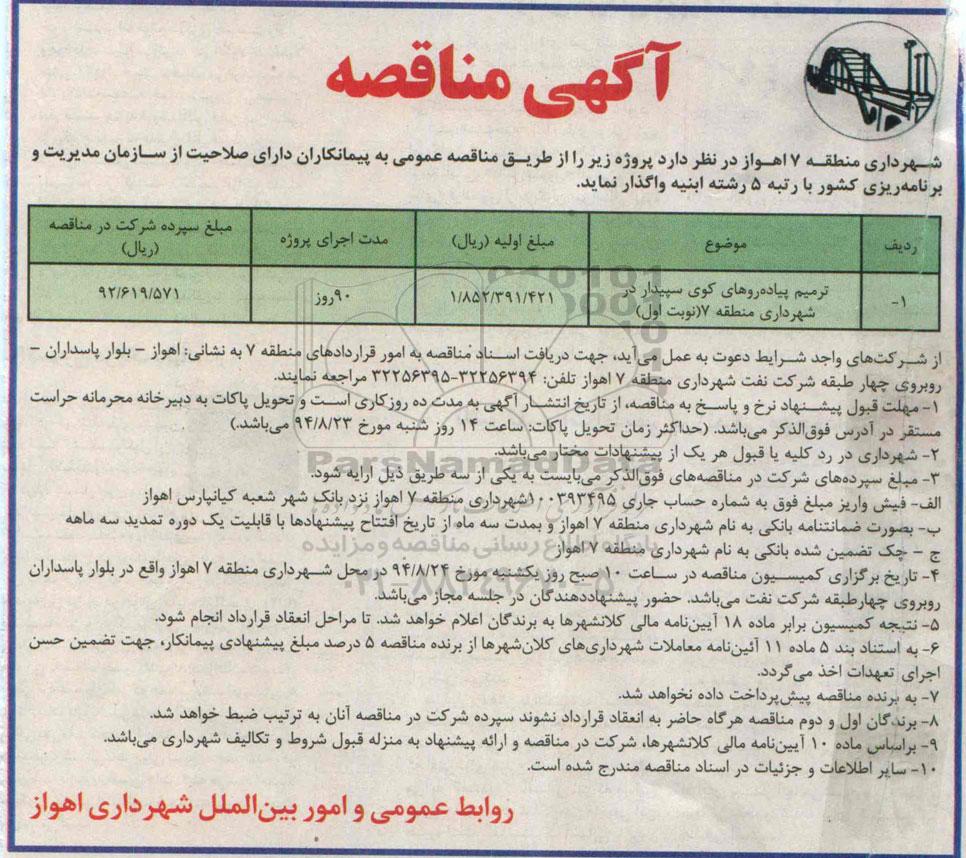 آگهی مناقصه
شهرداری منطقه ۷ اهواز در نظر دارد پروژه زیر را از طریق مناقصه عمومی به پیمانکاران دارای صلاحیت از سازمان مدیریت و
برنامه‌ریزی کشور با رتبه ۵ رشته ابنیه واگذار نماید.
ردیف
موضوع
مبلغ اولیه (ریال)
مدت اجرای پروژه
مبلغ سپرده شرکت در مناقصه
(ریال)
۱-
ترمیم پیاده‌روهای کوی سپیدار در
شهرداری منطقه ۷(نوبت اول)
۱/۸۵۲/۳۹۱/۴۲۱
۹۰روز
۹۲/۶۱۹/۵۷۱
از شرکت‌های واجد شرایط دعوت به عمل می‌آید، جهت دریافت اسناد مناقصه به امور قراردادهای منطقه ۷ به نشانی: اهواز – بلوار پاسداران –
روبروی چهار طبقه شرکت نفت شهرداری منطقه ۷ اهواز تلفن: ۳۲۲۵۶۳۹۴-۳۲۲۵۶۳۹۵ مراجعه نمایند.
۱- مهلت قبول پیشنهاد نرخ و پاسخ به مناقصه، از تاریخ انتشار آگهی به مدت ده روزکاری است و تحویل پاکات به دبیرخانه محرمانه حراست
مستقر در آدرس فوق‌الذکر می‌باشد. (حداکثر زمان تحویل پاکات: ساعت ۱۴ روز شنبه مورخ ۹۴/۸/۲۳ می‌باشد.)
۲- شهرداری در رد کلیه یا قبول هر یک از پیشنهادات مختار می‌باشد.
۳- مبلغ سپرده‌های شرکت در مناقصه‌های فوق‌الذکر می‌بایست به یکی از سه طریق ذیل ارایه شود.
الف- فیش واریز مبلغ فوق به شماره حساب جاری ۱۰۰۳۹۳۴۹۵شهرداری منطقه ۷ اهواز نزد بانک شهر شعبه کیانپارس اهواز
ب- بصورت ضمانتنامه بانکی به نام شهرداری منطقه ۷ اهواز و بمدت سه ماه از تاریخ افتتاح پیشنهادها با قابلیت یک دوره تمدید سه ماهه
ج – چک تضمین شده بانکی به نام شهرداری منطقه ۷ اهواز
۴- تاریخ برگزاری کمیسیون مناقصه در ساعت ۱۰ صبح روز یکشنبه مورخ ۹۴/۸/۲۴ در محل شهرداری منطقه ۷ اهواز واقع در بلوار پاسداران
روبروی چهارطبقه شرکت نفت می‌باشد. حضور پیشنهاددهندگان در جلسه مجاز می‌باشد.
۵- نتیجه کمیسیون برابر ماده ۱۸ آیین‌نامه مالی کلانشهرها به برندگان اعلام خواهد شد. تا مراحل انعقاد قرارداد انجام شود.
۶- به استناد بند ۵ ماده ۱۱ آئین‌نامه معاملات شهرداری‌های کلان‌شهرها از برنده مناقصه ۵ درصد مبلغ پیشنهادی پیمانکار، جهت تضمین حسن
اجرای تعهدات اخذ می‌گردد.
۷- به برنده مناقصه پیش‌پرداخت داده نخواهد شد.
۸- برندگان اول و دوم مناقصه هرگاه حاضر به انعقاد قرارداد نشوند سپرده شرکت در مناقصه آنان به ترتیب ضبط خواهد شد.
۹- براساس ماده ۱۰ آیین‌نامه مالی کلانشهرها، شرکت در مناقصه و ارائه پیشنهاد به منزله قبول شروط و تکالیف شهرداری می‌باشد.
۱۰- سایر اطلاعات و جزئیات در اسناد مناقصه مندرج شده است.
روابط عمومی و امور بین‌الملل شهرداری اهواز
ParsNamadData
پایگاه اطلاع رسانی مناقصه و مزایده
۰۲۱-۸۸۳۴۹۶۷۰-۵